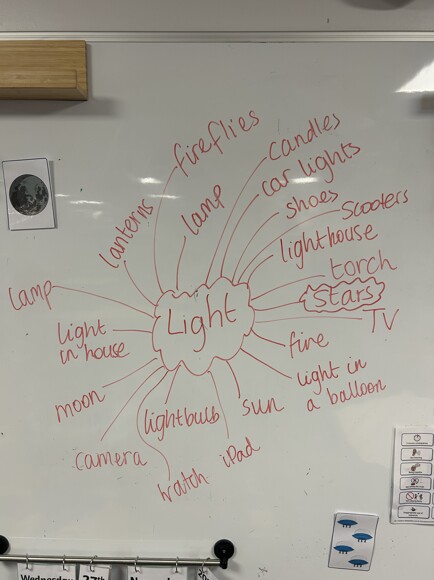 fireflies
candles
car lights
lamp
shoes
scooters
lanterns
lighthouse
torch
lamp
Light
stars
TV
light
in house
fire
light in
a balloon
moon
lightbulb
sun
camera
iPad
watch
Wednesday
27th